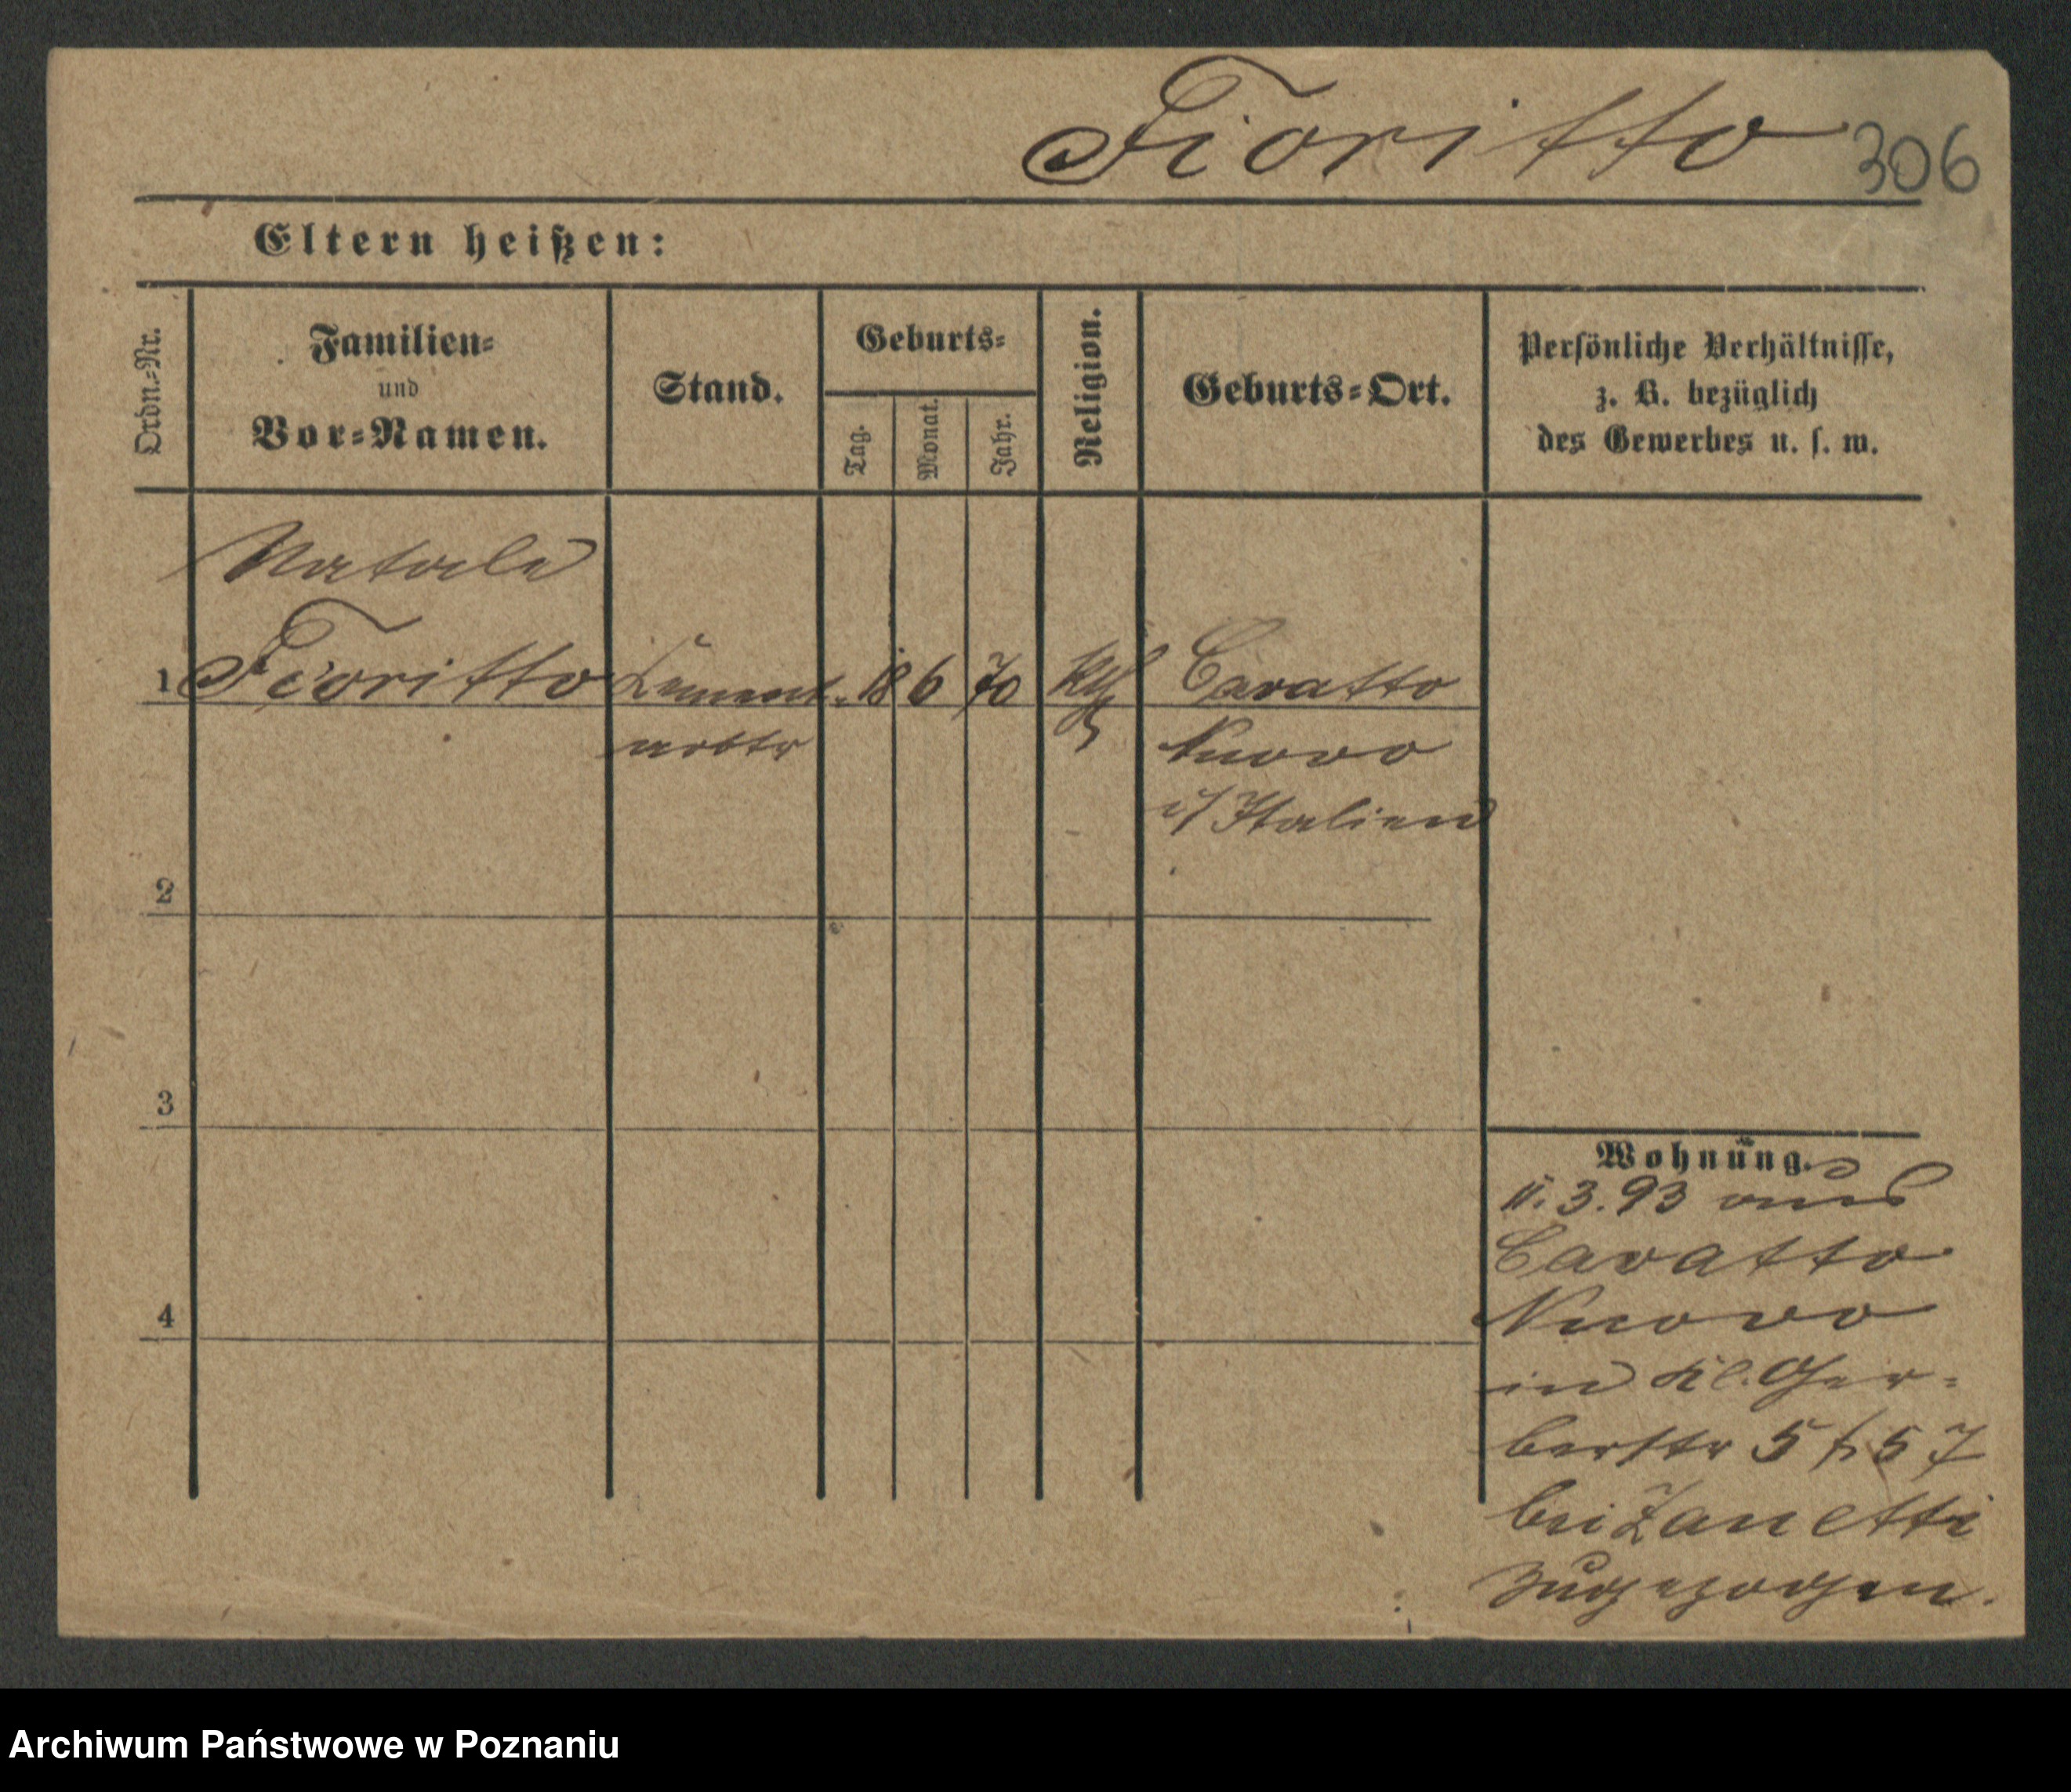 Fioritto 306
Eltern heißen:
Ordn.-Nr.
Familien-
und
Vor-Namen.
Stand.
Geburts-
Tag.
Monat.
Jahr.
Religion.
Geburts-Ort.
Persönliche Verhältnisse,
z. B. bezüglich
des Gewerbes u. s. w.
Natale
1 Fioritto Cement- 18 6 70 Kth Cavatto
arbtr Nuovo
i/Italien
2
3
4
Wohnung.
11.3.93 aus
Cavatto
Nuovo
in Kl. Ger-
berstr 5 57
bei Zanetti
zugezogen.
Archiwum Państwowe w Poznaniu